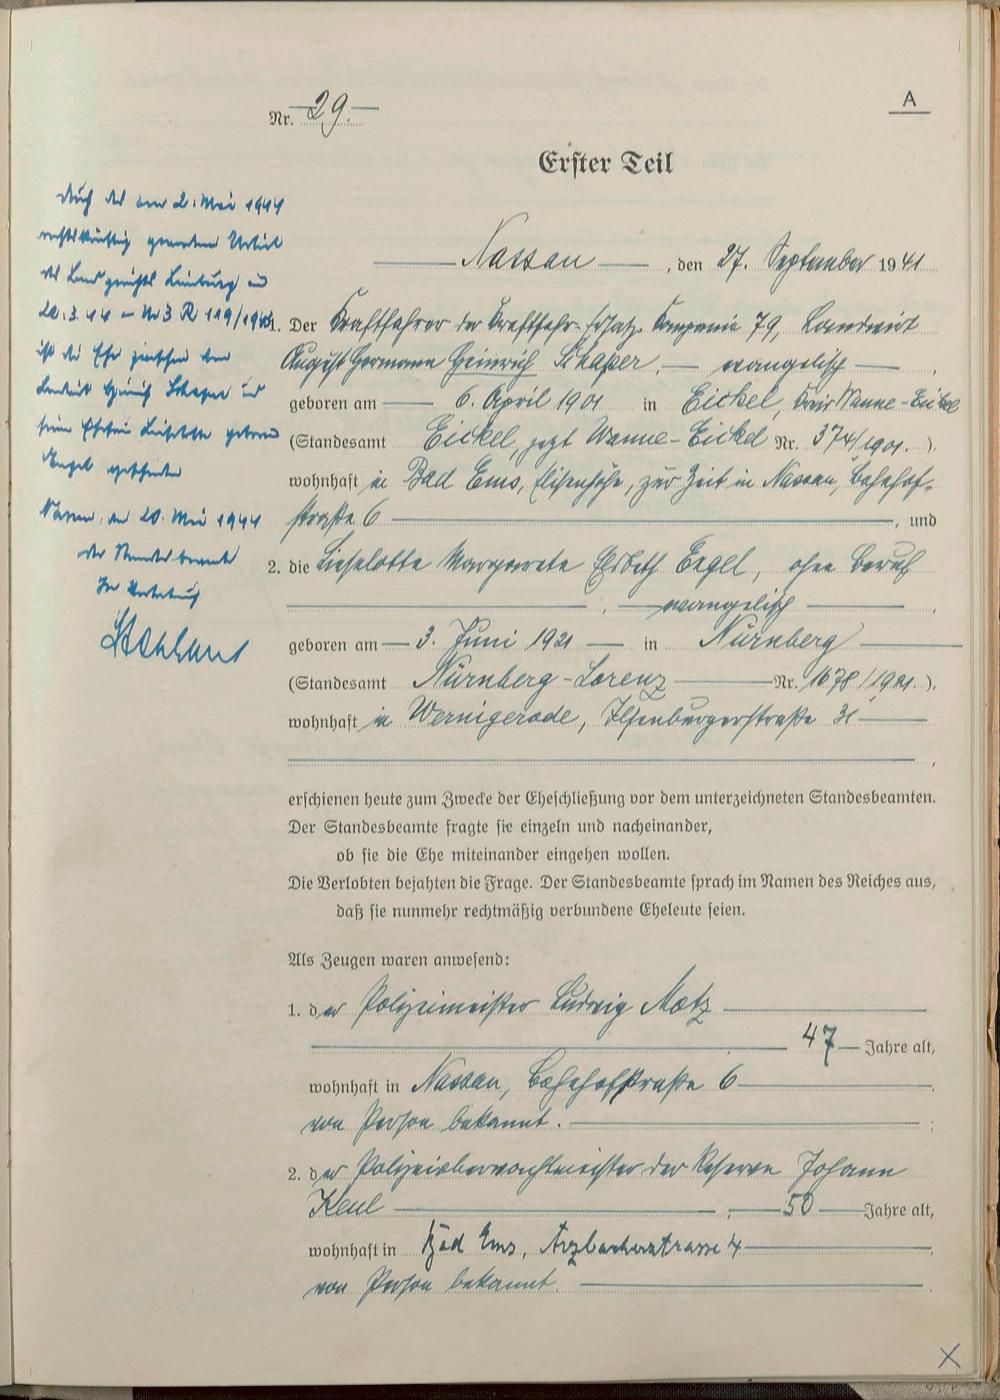 A
Nr. 29.
Erster Teil
Durch das am 2. Mai 1944
rechtskräftig gewordene Urteil
des Landgerichts Limburg
20.3.44 - 3 R 119/
ist die Ehe zwischen dem
Landwirt Heinrich und
seiner Ehefrau Lieselotte geborene
geschieden
Nassau, den 20. Mai 1944
der Standesbeamte
In Vertretung
Nassau, den 27. September 1941
1. Der Kraftfahrer der Kraftfahr-Ersatz-Kompanie 79, Landwirt
August Hermann Heinrich — evangelisch —,
geboren am — 6. April 1901 in Eickel, Kreis Wanne-Eickel
(Standesamt Eickel, jetzt Wanne-Eickel Nr. 374/1901.).
wohnhaft in Bad Ems, Elisenhöhe, zur Zeit in Nassau, Bahnhof-
straße 6 —, und
2. die Lieselotte Margarete Elsbeth, ohne Beruf
—, — evangelisch —,
geboren am — 3. Juni 1921 — in Nürnberg —
(Standesamt Nürnberg-Lorenz — Nr. 1678/1921.).
wohnhaft in Wernigerode, Ilsenburgerstraße 31 —
—,
erschienen heute zum Zwecke der Eheschließung vor dem unterzeichneten Standesbeamten.
Der Standesbeamte fragte sie einzeln und nacheinander,
ob sie die Ehe miteinander eingehen wollen.
Die Verlobten bejahten die Frage. Der Standesbeamte sprach im Namen des Reiches aus,
daß sie nunmehr rechtmäßig verbundene Eheleute seien.
Als Zeugen waren anwesend:
1. der Polizeimeister Ludwig Motz —
— 47 — Jahre alt,
wohnhaft in Nassau, Bahnhofstraße 6 —.
von Person bekannt. —;
2. der Polizeioberwachtmeister der Reserve Johann
Keul —, — 50 — Jahre alt,
wohnhaft in Bad Ems, Arzbacherstrasse 4 —.
von Person bekannt. —.